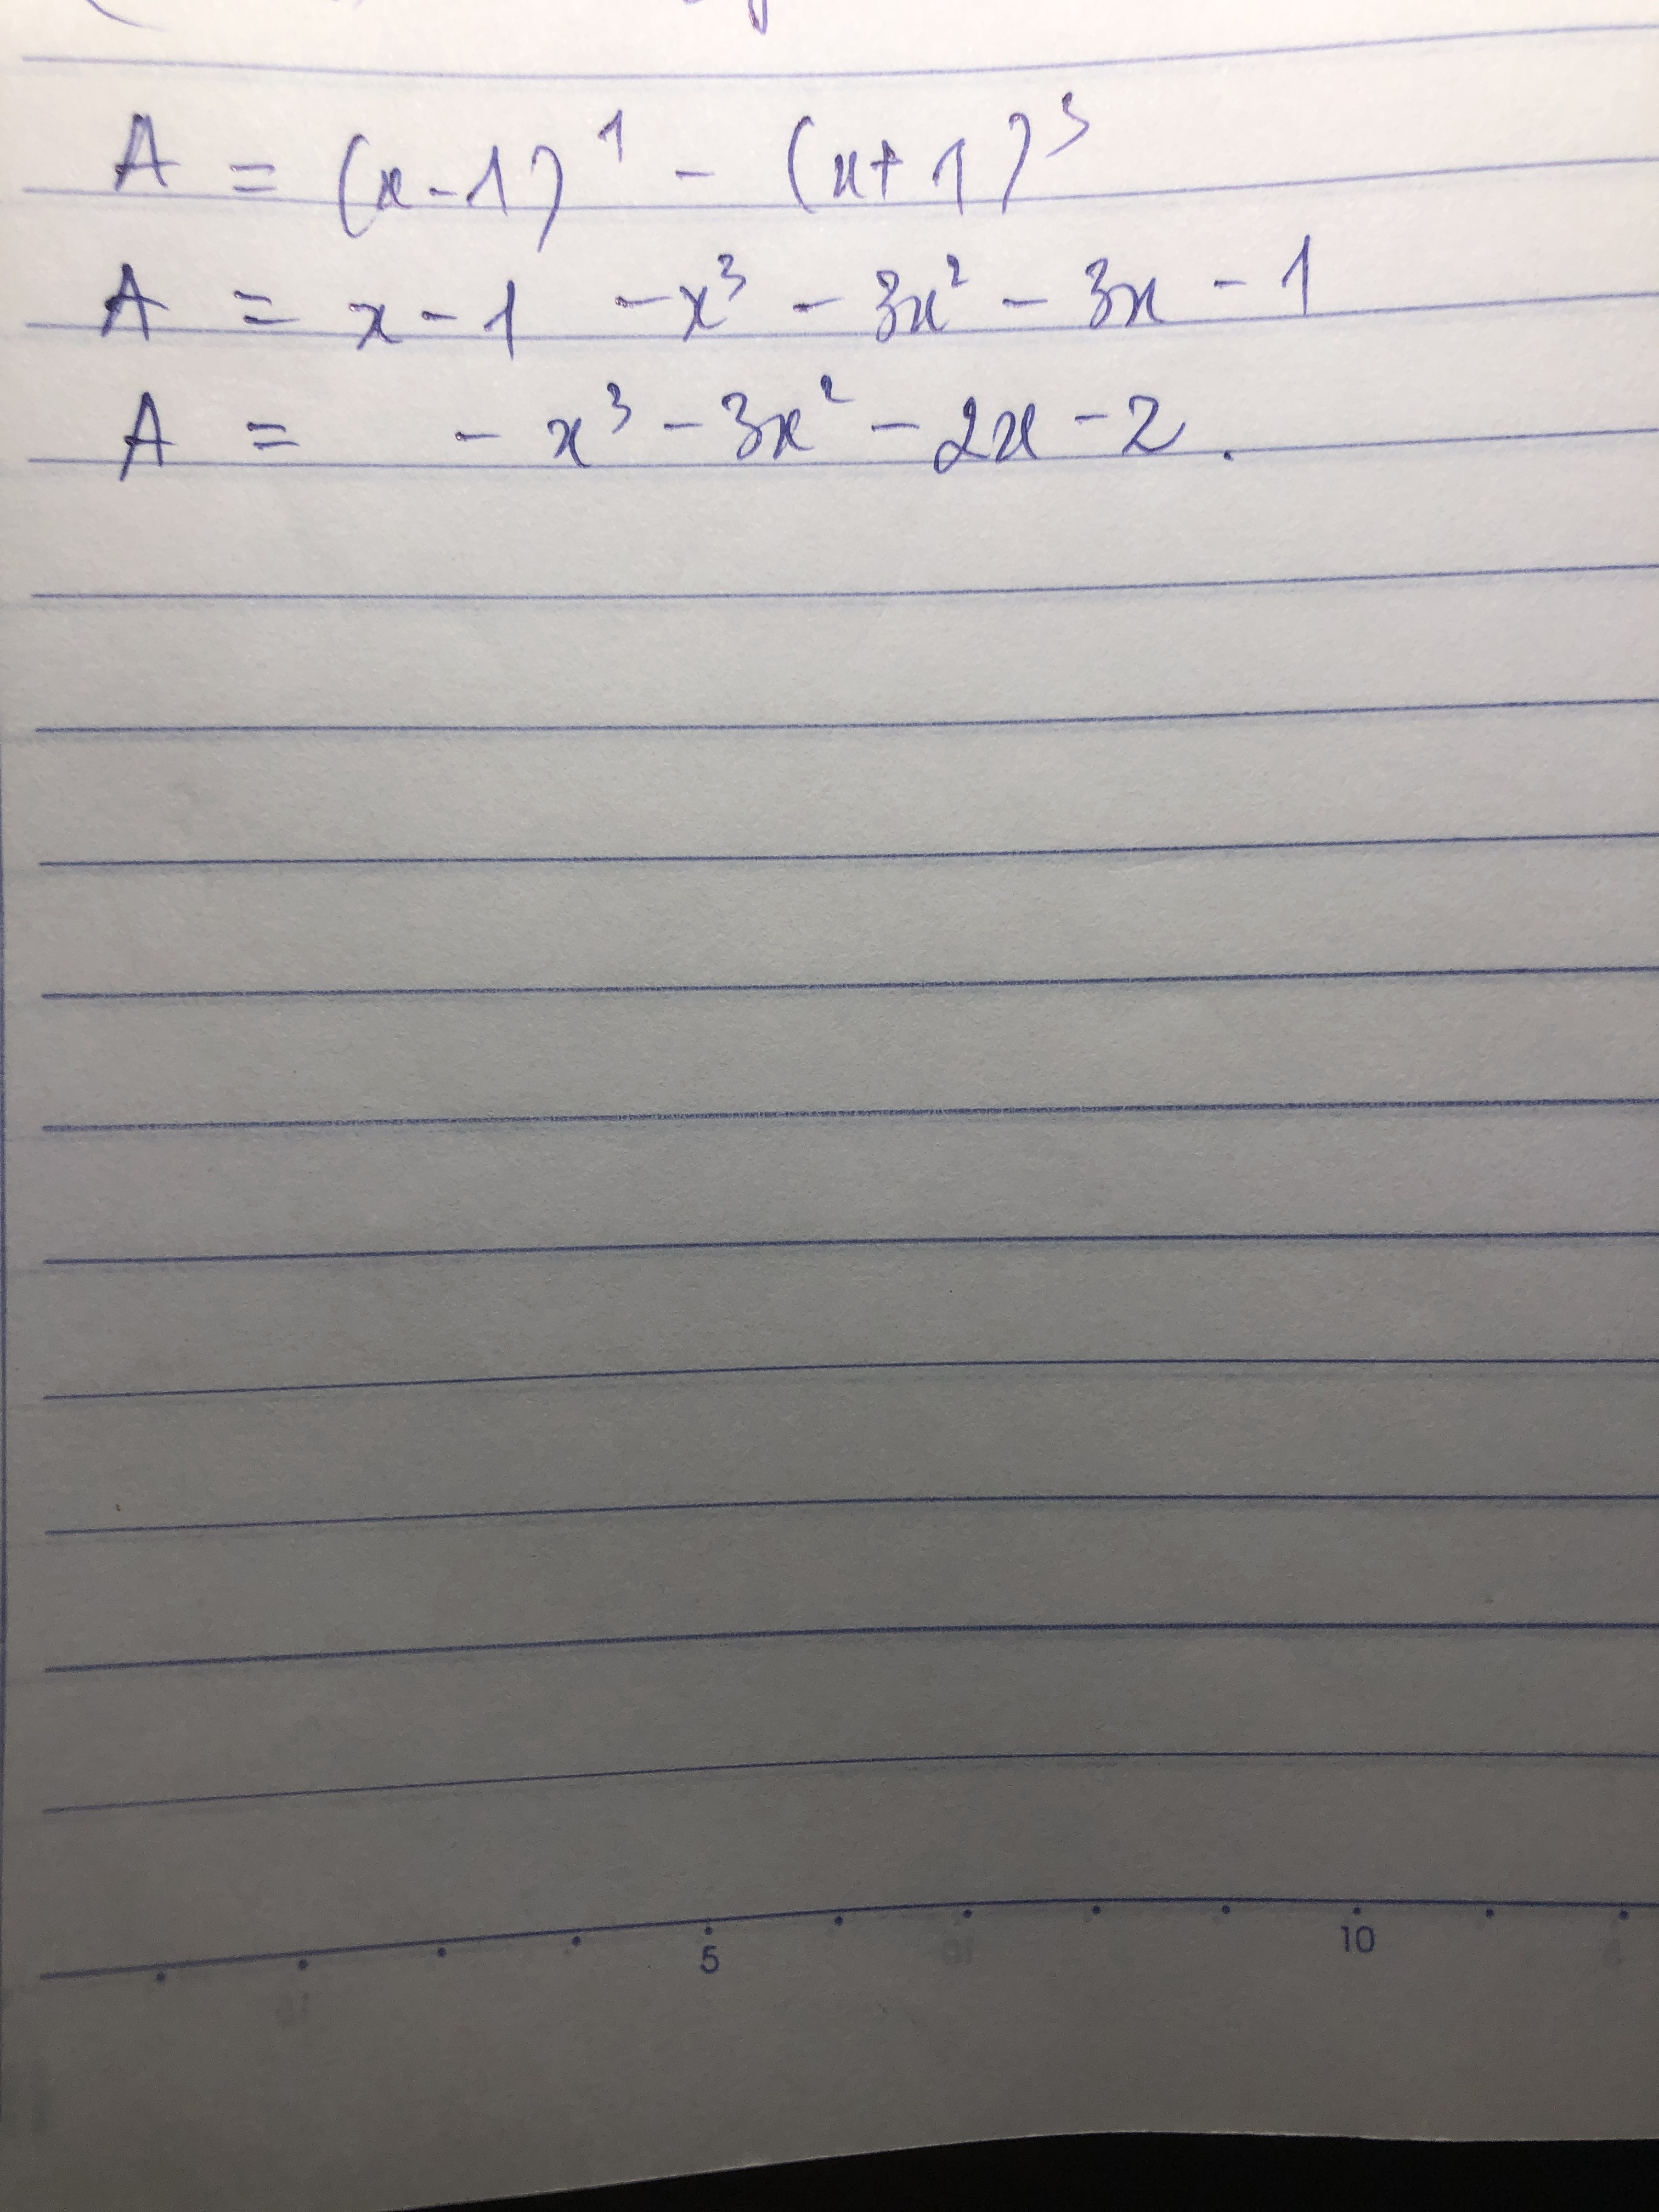 A = (x-1)¹ - (x+1)³
A = x-1 -x³ - 3x² - 3x - 1
A = - x³ - 3x² - 2x - 2.
5 10